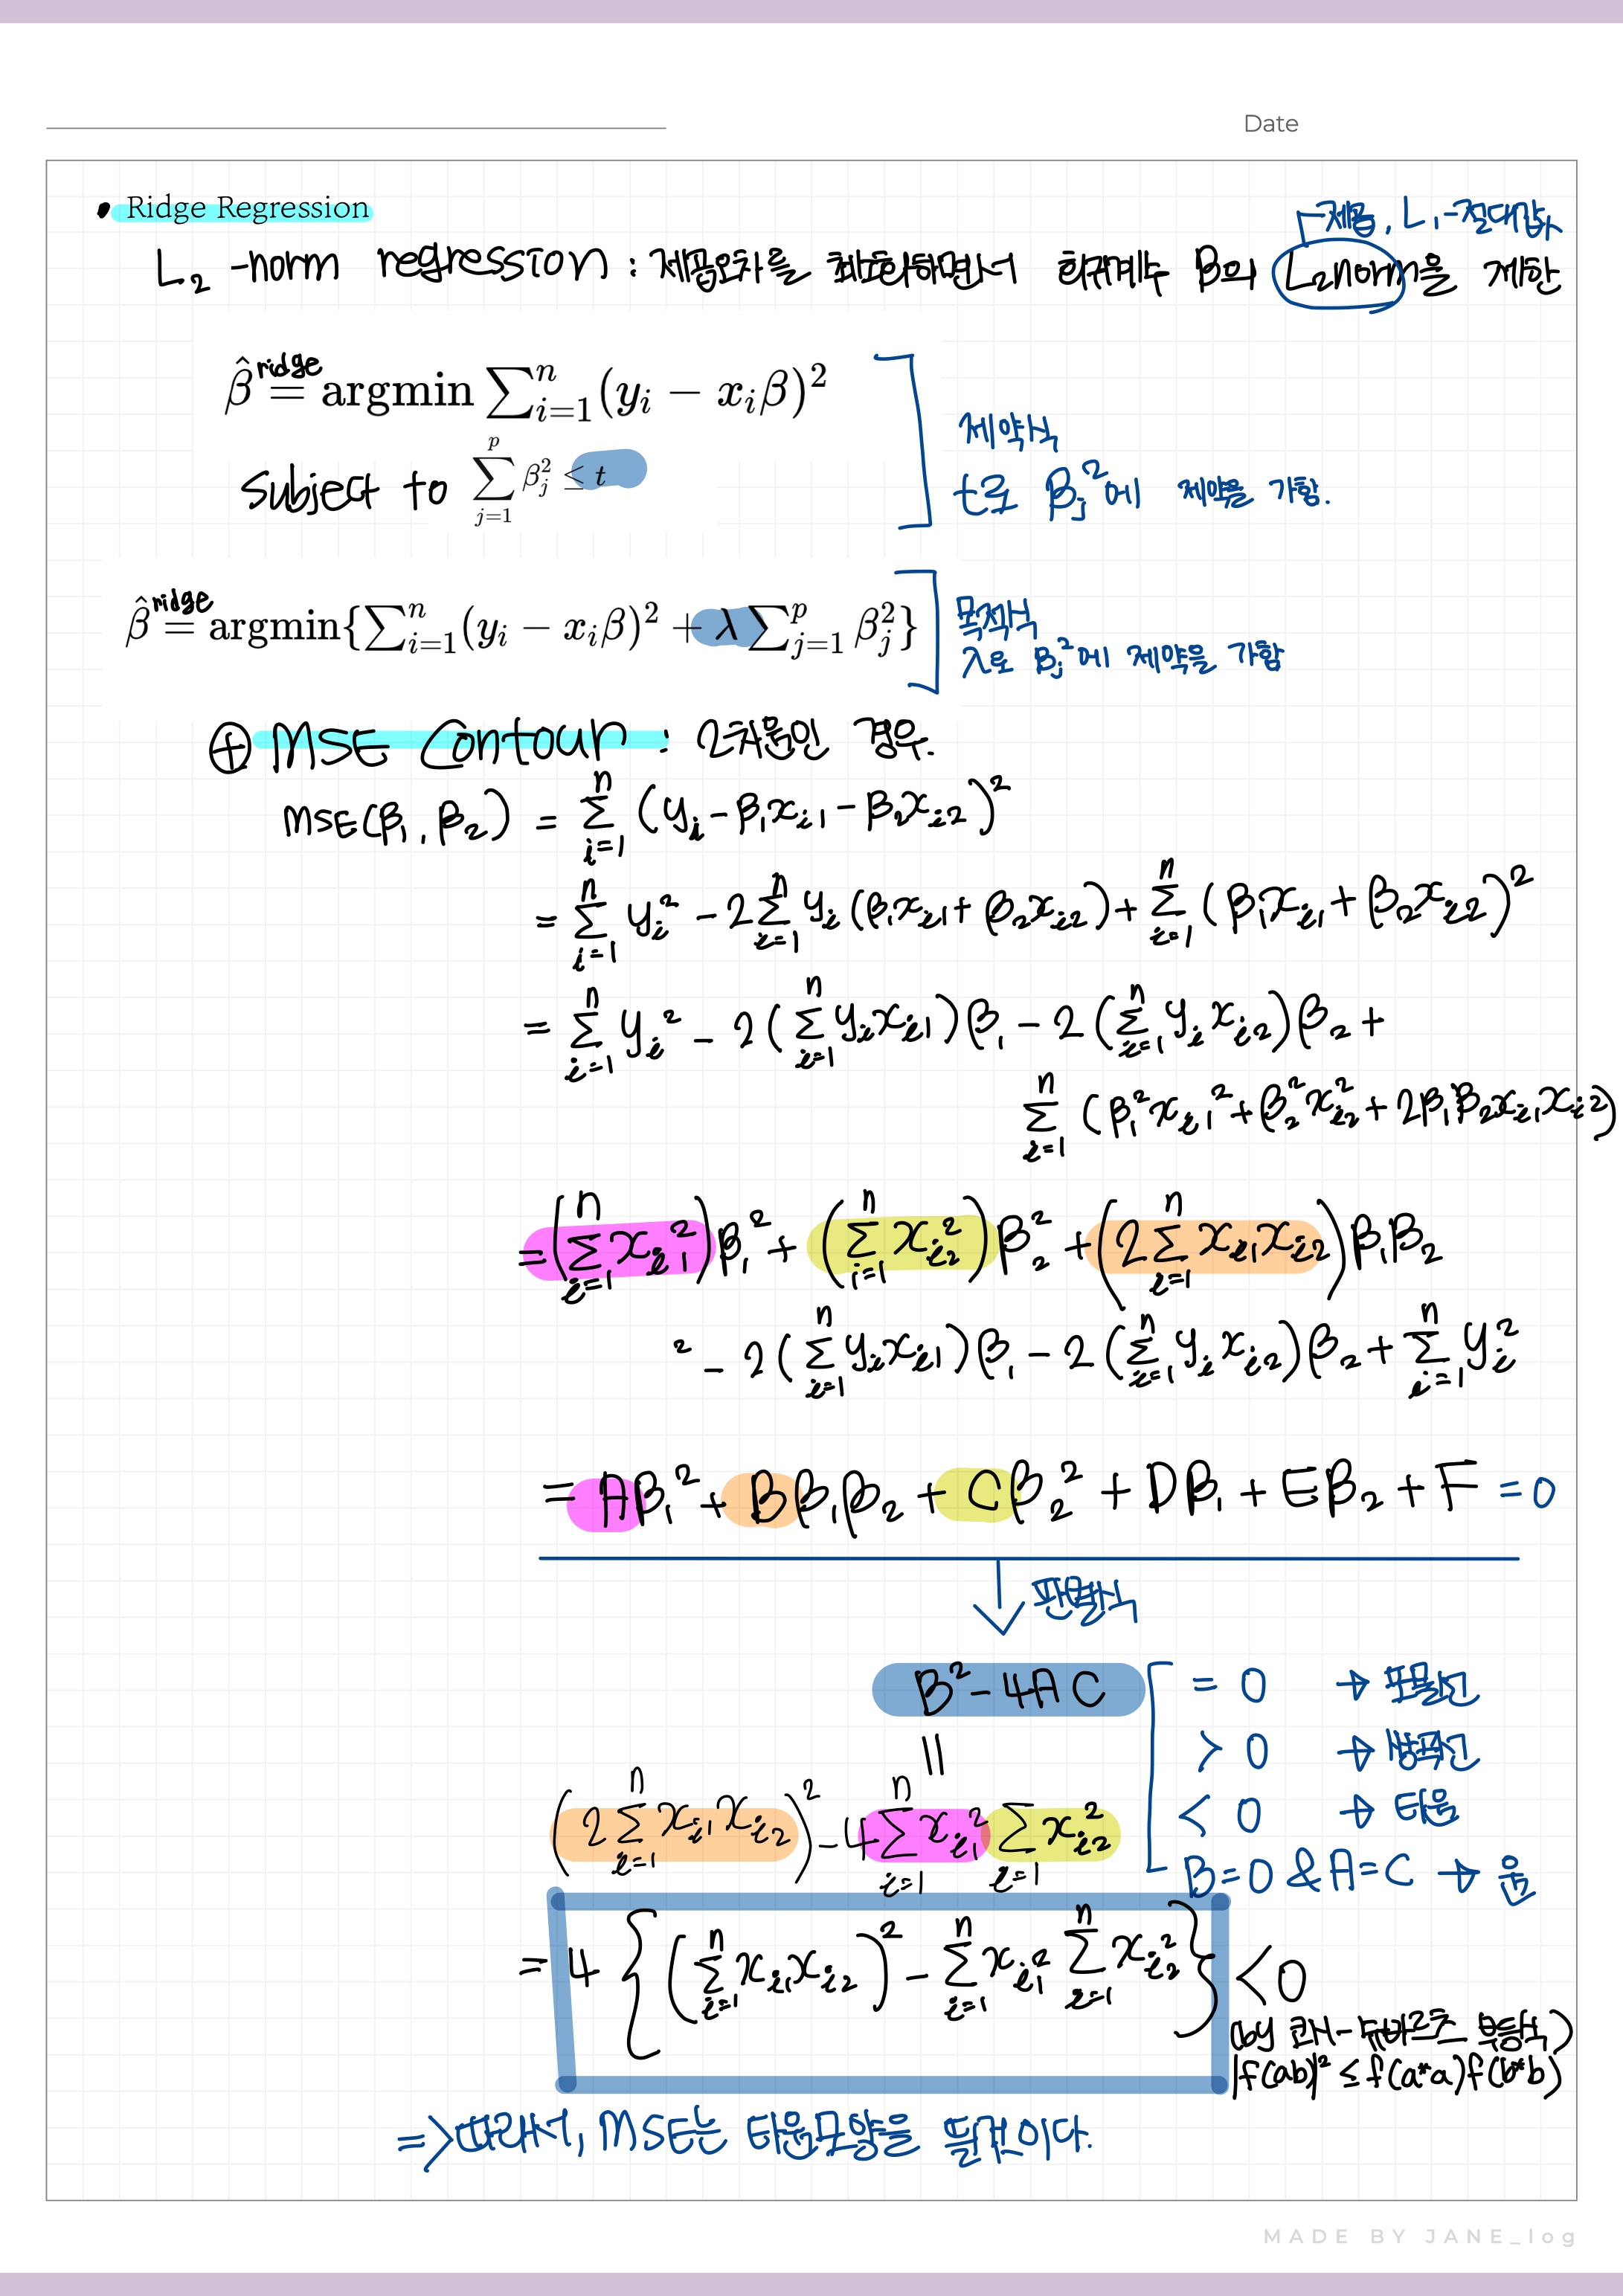 Date
• Ridge Regression
제곱, L₁-절대값
L₂-norm regression : 제곱오차를 최소화하면서 회귀계수 β의 L₂norm을 제한
β̂^ridge = argmin ∑_{i=1}^{n}(y_i − x_iβ)²
제약식
Subject to ∑_{j=1}^{p} β_j² ≤ t
t로 β_j²에 제약을 가함.
β̂^ridge = argmin{∑_{i=1}^{n}(y_i − x_iβ)² + λ∑_{j=1}^{p} β_j²}
목적식
λ로 β_j²에 제약을 가함
⊕ MSE Contour : 2차원인 경우.
MSE(β₁, β₂) = ∑_{i=1}^{n} (y_i − β₁x_{i1} − β₂x_{i2})²
= ∑_{i=1}^{n} y_i² − 2∑_{i=1}^{n} y_i(β₁x_{i1} + β₂x_{i2}) + ∑_{i=1}^{n} (β₁x_{i1} + β₂x_{i2})²
= ∑_{i=1}^{n} y_i² − 2(∑_{i=1}^{n} y_ix_{i1})β₁ − 2(∑_{i=1}^{n} y_ix_{i2})β₂ +
∑_{i=1}^{n} (β₁²x_{i1}² + β₂²x_{i2}² + 2β₁β₂x_{i1}x_{i2})
= (∑_{i=1}^{n} x_{i1}²)β₁² + (∑_{i=1}^{n} x_{i2}²)β₂² + (2∑_{i=1}^{n} x_{i1}x_{i2})β₁β₂
² − 2(∑_{i=1}^{n} y_ix_{i1})β₁ − 2(∑_{i=1}^{n} y_ix_{i2})β₂ + ∑_{i=1}^{n} y_i²
= Aβ₁² + Bβ₁β₂ + Cβ₂² + Dβ₁ + Eβ₂ + F = 0
↓ 판별식
B² − 4AC
= 0 → 포물선
> 0 → 쌍곡선
< 0 → 타원
B=0 & A=C → 원
||
(2∑_{i=1}^{n} x_{i1}x_{i2})² − 4∑_{i=1}^{n} x_{i1}² ∑_{i=1} x_{i2}²
= 4{(∑_{i=1}^{n} x_{i1}x_{i2})² − ∑_{i=1}^{n} x_{i1}² ∑_{i=1}^{n} x_{i2}²} < 0
(by 코시-슈바르츠 부등식)
|f(ab)|² ≤ f(a*a)f(b*b)
=> 따라서, MSE는 타원모양을 띌것이다.
MADE BY JANE_log